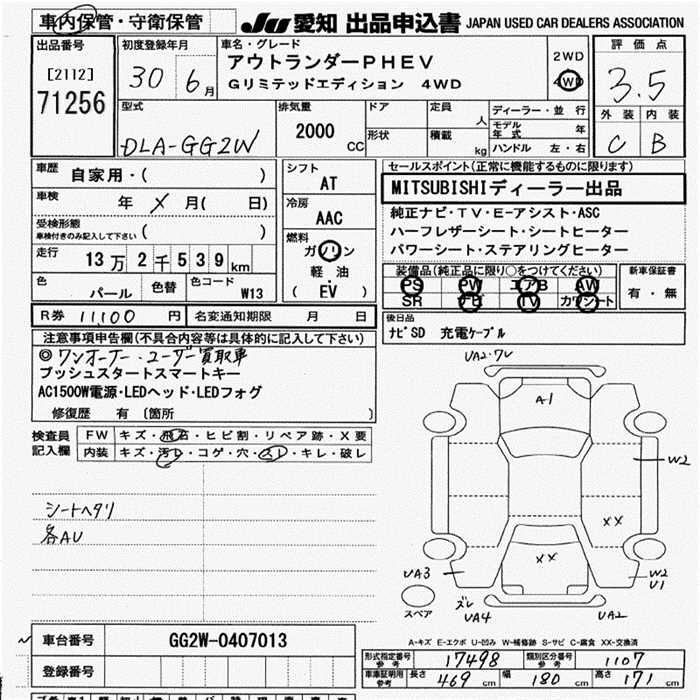 車内保管・守衛保管 JU 愛知 出品申込書 JAPAN USED CAR DEALERS ASSOCIATION
出品番号 [2112] 71256
初度登録年月 30 6月
車名・グレード
アウトランダーPHEV
Gリミテッドエディション 4WD
2WD
4WD
評価点
3.5
外装 内装
C B
型式 DLA-GG2W
排気量 2000 CC
ドア 形状
定員 人
積載 kg
ディーラー・並行
モデル年式 年
ハンドル 左・右
車歴 自家用・( )
車検 年 メ 月( 日)
受検形態
車検付きのみ記入して下さい ( )
走行 13万2千539km
色 パール 色替 色コード W13
シフト AT
冷房 AAC
燃料 ガソリン
軽油
( EV )
セールスポイント(正常に機能するものに限ります)
MITSUBISHIディーラー出品
純正ナビ・TV・E-アシスト・ASC
ハーフレザーシート・シートヒーター
パワーシート・ステアリングヒーター
装備品(純正品に限り○をつけてください)
PS PW エアB AW
SR ナビ TV カワシート
新車保証書
有・無
R券 11,100 円 名変通知期限 月 日
後日品
ナビSD 充電ケーブル
注意事項申告欄(不具合内容等は具体的に記入して下さい)
◎ワンオーナー・ユーザー買取車
プッシュスタートスマートキー
AC1500W電源・LEDヘッド・LEDフォグ
修復歴 有 〔箇所 〕
検査員記入欄
FW キズ・飛石・ヒビ割・リペア跡・X要
内装 キズ・汚レ・コゲ・穴・スレ・キレ・破レ
シートヘタリ
各AU
UA2・ワレ
A1
W2
XX
XX
UA3
W2
U1
スペア
ズレ
UA4
UA2
A-キズ E-エクボ U-凹み W-補修跡 S-サビ C-腐食 XX-交換済
車台番号 GG2W-0407013
登録番号
形式指定番号 参考 17498 類別区分番号 参考 1107
車庫証明用 参考 長さ 469cm 幅 180cm 高さ 171cm